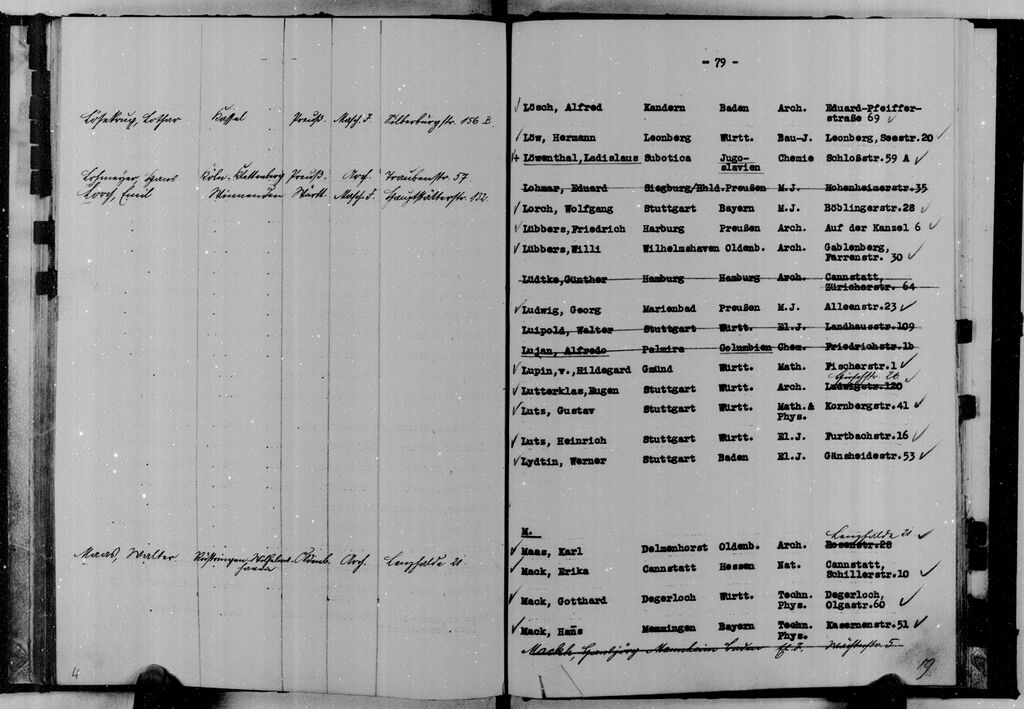 Lösekrug, Lothar Kassel Preuß. Masch. J. Silberburgstr. 156 B
Lohmeyer, Hans Köln-Klettenberg Preuß. Arch. Traubenstr. 57
Lorch, Emil Winnenden Württ. Masch. J. Hauptstätterstr. 132.
Maas, Walter Rüstringen-Wilhelms- Oldenb. Arch. Lenzhalde 21.
haven
4
- 79 -
✓ Lösch, Alfred Kandern Baden Arch. Eduard-Pfeiffer-
straße 69 ✓
✓ Löw, Hermann Leonberg Württ. Bau-J. Leonberg, Seestr.20 ✓
✓+ Löwenthal, Ladislaus Subotica Jugo- Chemie Schloßstr.59 A ✓
slavien
Lohmar, Eduard Siegburg/Rhld. Preußen M.J. Hohenheimerstr.35
✓ Lorch, Wolfgang Stuttgart Bayern M.J. Böblingerstr.28 ✓
✓ Lübbers, Friedrich Harburg Preußen Arch. Auf der Kanzel 6 ✓
✓ Lübbers, Willi Wilhelmshaven Oldenb. Arch. Gablenberg,
Farrenstr. 30 ✓
Lüdtke, Günther Hamburg Hamburg Arch. Cannstatt,
Züricherstr. 64
✓ Ludwig, Georg Marienbad Preußen M.J. Alleenstr.23 ✓
Luipold, Walter Stuttgart Württ. El.J. Landhausstr.109
Lujan, Alfredo Palmira Columbien Chem. Friedrichstr.1b
✓ Lupin, v., Hildegard Gmünd Württ. Math. Fischerstr.1 ✓
✓ Lutterklas, Eugen Stuttgart Württ. Arch. Ludwigstr.120 ✓
✓ Lutz, Gustav Stuttgart Württ. Math.& Kornbergstr.41 ✓
Phys.
✓ Lutz, Heinrich Stuttgart Württ. El.J. Furtbachstr.16 ✓
✓ Lydtin, Werner Stuttgart Baden El.J. Gänsheidestr.53 ✓
M.
Lenzhalde 21. ✓
✓ Maas, Karl Delmenhorst Oldenb. Arch. Rosenstr.28
✓ Mack, Erika Cannstatt Hessen Nat. Cannstatt,
Schillerstr.10 ✓
✓ Mack, Gotthard Degerloch Württ. Techn. Degerloch,
Phys. Olgastr.60 ✓
✓ Mack, Hans Memmingen Bayern Techn. Kasernenstr.51 ✓
Phys.
Mackh, Hansjörg Mannheim Baden El. J.
19